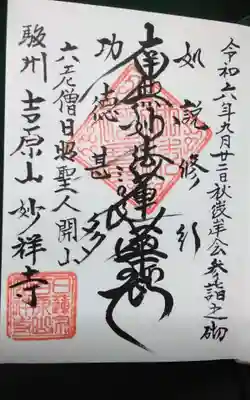 令和六年九月廿二日秋彼岸会参詣之砌
如説修行
南無妙法蓮華経
功徳甚多
六老僧日昭聖人開山
駿州吉原山妙祥寺